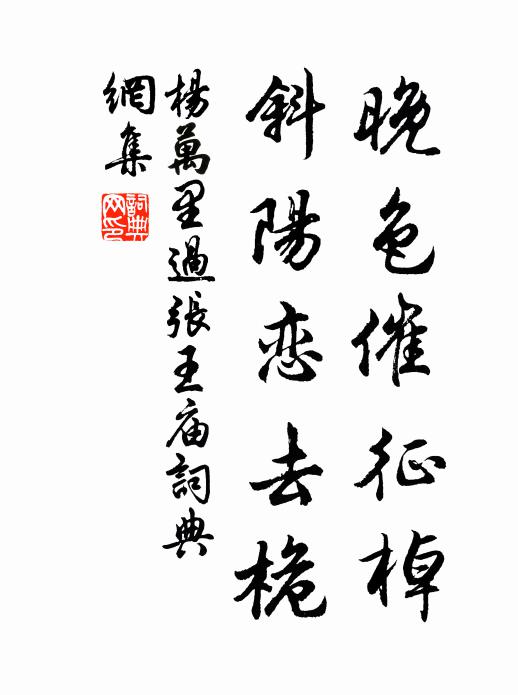 晚色催征棹
斜陽恋去桅
楊萬里過張王庙詞典
網集
詞典
网印